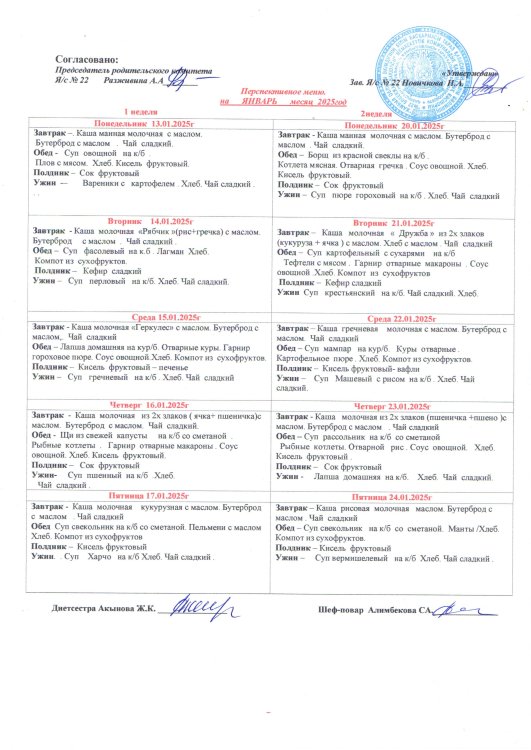 Согласовано:
Председатель родительского комитета
Я/с № 22 Разживина А.А
«Утверждаю»
Зав. Я/с № 22 Новичкова И.А.
Перспективное меню.
на ЯНВАРЬ месяц 2025год
1 неделя
2неделя
Понедельник 13.01.2025г
Завтрак – Каша манная молочная с маслом.
Бутерброд с маслом . Чай сладкий.
Обед - Суп овощной на к/б .
Плов с мясом. Хлеб. Кисель фруктовый.
Полдник – Сок фруктовый
Ужин –- Вареники с картофелем . Хлеб. Чай сладкий .
. .
Понедельник 20.01.2025г
Завтрак - Каша манная молочная с маслом. Бутерброд с
маслом . Чай сладкий.
Обед – Борщ из красной свеклы на к/б .
Котлета мясная. Отварная гречка . Соус овощной. Хлеб.
Кисель фруктовый.
Полдник – Сок фруктовый
Ужин – Суп пюре гороховый на к/б . Хлеб. Чай сладкий
Вторник 14.01.2025г
Завтрак - Каша молочная «Рябчик »(рис+гречка) с маслом.
Бутерброд с маслом . Чай сладкий .
Обед – Суп фасолевый на к.б . Лагман Хлеб.
Компот из сухофруктов.
Полдник – Кефир сладкий
Ужин – Суп перловый на к/б. Хлеб. Чай сладкий.
Вторник 21.01.2025г
Завтрак – Каша молочная « Дружба » из 2х злаков
(кукуруза + ячка ) с маслом. Хлеб с маслом . Чай сладкий
Обед – Суп картофельный с сухарями на к/б
Тефтели с мясом . Гарнир отварные макароны . Соус
овощной .Хлеб. Компот из сухофруктов
Полдник – Кефир сладкий
Ужин Суп крестьянский на к/б. Чай сладкий. Хлеб.
Среда 15.01.2025г
Завтрак - Каша молочная «Геркулес» с маслом. Бутерброд с
маслом,. Чай сладкий
Обед – Лапша домашняя на кур/б. Отварные куры. Гарнир
гороховое пюре. Соус овощной.Хлеб. Компот из сухофруктов.
Полдник – Кисель фруктовый – печенье
Ужин – Суп гречневый на к/б . Хлеб. Чай сладкий
Среда 22.01.2025г
Завтрак – Каша гречневая молочная с маслом. Бутерброд с
маслом . Чай сладкий
Обед – Суп мампар на кур/б. Куры отварные .
Картофельное пюре . Хлеб. Компот из сухофруктов.
Полдник – Кисель фруктовый- вафли
Ужин – Суп Машевый с рисом на к/б . Хлеб. Чай
сладкий.
Четверг 16.01.2025г
Завтрак - Каша молочная из 2х злаков ( ячка+ пшеничка)с
маслом. Бутерброд с маслом. Чай сладкий.
Обед - Щи из свежей капусты на к/б со сметаной .
Рыбные котлеты . Гарнир отварные макароны . Соус
овощной. Хлеб. Кисель фруктовый.
Полдник – Сок фруктовый
Ужин- Суп пшенный на к/б .Хлеб.
Чай сладкий .
Четверг 23.01.2025г
Завтрак - Каша молочная из 2х злаков (пшеничка +пшено )с
маслом. Бутерброд с маслом . Чай сладкий
Обед – Суп рассольник на к/б со сметаной
Рыбные котлеты. Отварной рис . Соус овощной. Хлеб.
Кисель фруктовый .
Полдник – Сок фруктовый
Ужин - Лапша домашняя на к/б. Хлеб. Чай сладкий.
Пятница 17.01.2025г
Завтрак - Каша молочная кукурузная с маслом. Бутерброд
с маслом . Чай сладкий
Обед Суп свекольник на к/б со сметаной. Пельмени с маслом
Хлеб. Компот из сухофруктов
Полдник – Кисель фруктовый
Ужин. . Суп Харчо на к/б Хлеб. Чай сладкий .
Пятница 24.01.2025г
Завтрак – Каша рисовая молочная маслом. Бутерброд с
маслом . Чай сладкий
Обед – Суп свекольник на к/б со сметаной. Манты /Хлеб.
Компот из сухофруктов.
Полдник – Кисель фруктовый
Ужин – Суп вермишелевый на к/б. Хлеб. Чай сладкий .
Диетсестра Акынова Ж.К.
Шеф-повар Алимбекова СА.